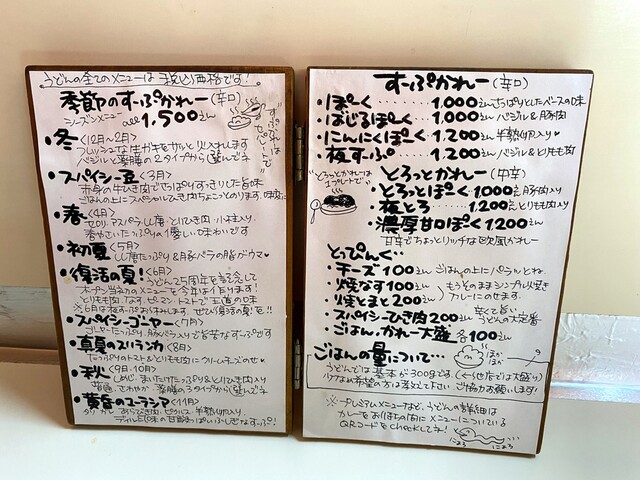 うどんの全てのメニューは税込価格です!
季節のすーぷかれー(辛口)
シーズンメニュー all 1,500えん
すーぷとごはんはセパレートで
・冬<12月~2月>
フレッシュな生カキをサッと火入れします
バジルと薬膳の2タイプから選んでネ
・スパイシー豆<3月>
赤身の牛ひき肉でさっぱりすっきりした旨味
ごはんの上にスペシャルひき肉ちょこっとのります。
・春<4月>
セロリ・アスパラ・しし唐・とりひき肉・小柱入り
春やさいたっぷりの優しい味わいです
・初夏<5月>
しし唐たっぷり&豚バラの脂がウマ♥
・復活の夏!<6月>
うどん25周年を記念して
オープン当初のメニューを今年は作ります!
とりもも肉、なす、ピーマン、トマトで王道の味
・スパイシーゴーヤー<7月>
ゴーヤーたっぷり
・真夏のスリランカ<8月>
たっぷりのトマト&とりもも肉にクリームチーズのせ♥
・秋<9月・10月>
しめじ、まいたけたっぷり&とりひき肉入り
薬膳の3タイプから選んでネ
・黄昏のユーラシア<11月>
あらびき肉・ピクルス・半熟卵入り
すーぷかれー(辛口)
・ぽーく……1,000えん さっぱりとしたベースの味
・ばじるぽーく…1,000えん バジル&豚肉
・にんにくぽーく 1,200えん 半熟卵入り♥
・夜すーぷ……1,200えん バジル&とりもも肉
とろっとかれーは1プレートで
とろっとかれー(中辛)
・とろっとぽーく 1,000えん 豚肉入り
・夜とろ……1,200えん とりもも肉入り
・濃厚甘口ぽーく 1,200えん
甘辛でちょっとリッチな欧風カレー
とっぴんぐ…
・チーズ 100えん ごはんの上にパラッとね
・焼なす 100えん
・焼とまと 200えん
もうそのまんまシンプルに焼き カレーにのせます。
・スパイシーひき肉 200えん 辛くて旨い うどんの大定番
・ごはん・かれー大盛 各100えん
ほかほか
ごはんの量について…
うどんでは基本が300gです。(←よそ店では大盛り)
少なめ希望の方は教えて下さい。ご協力お願いします!
※プレミアムメニューなど、うどんの詳細は
カレーをお待ちの間にメニューについている
QRコードをcheckしてネ!
にょろ にょろ